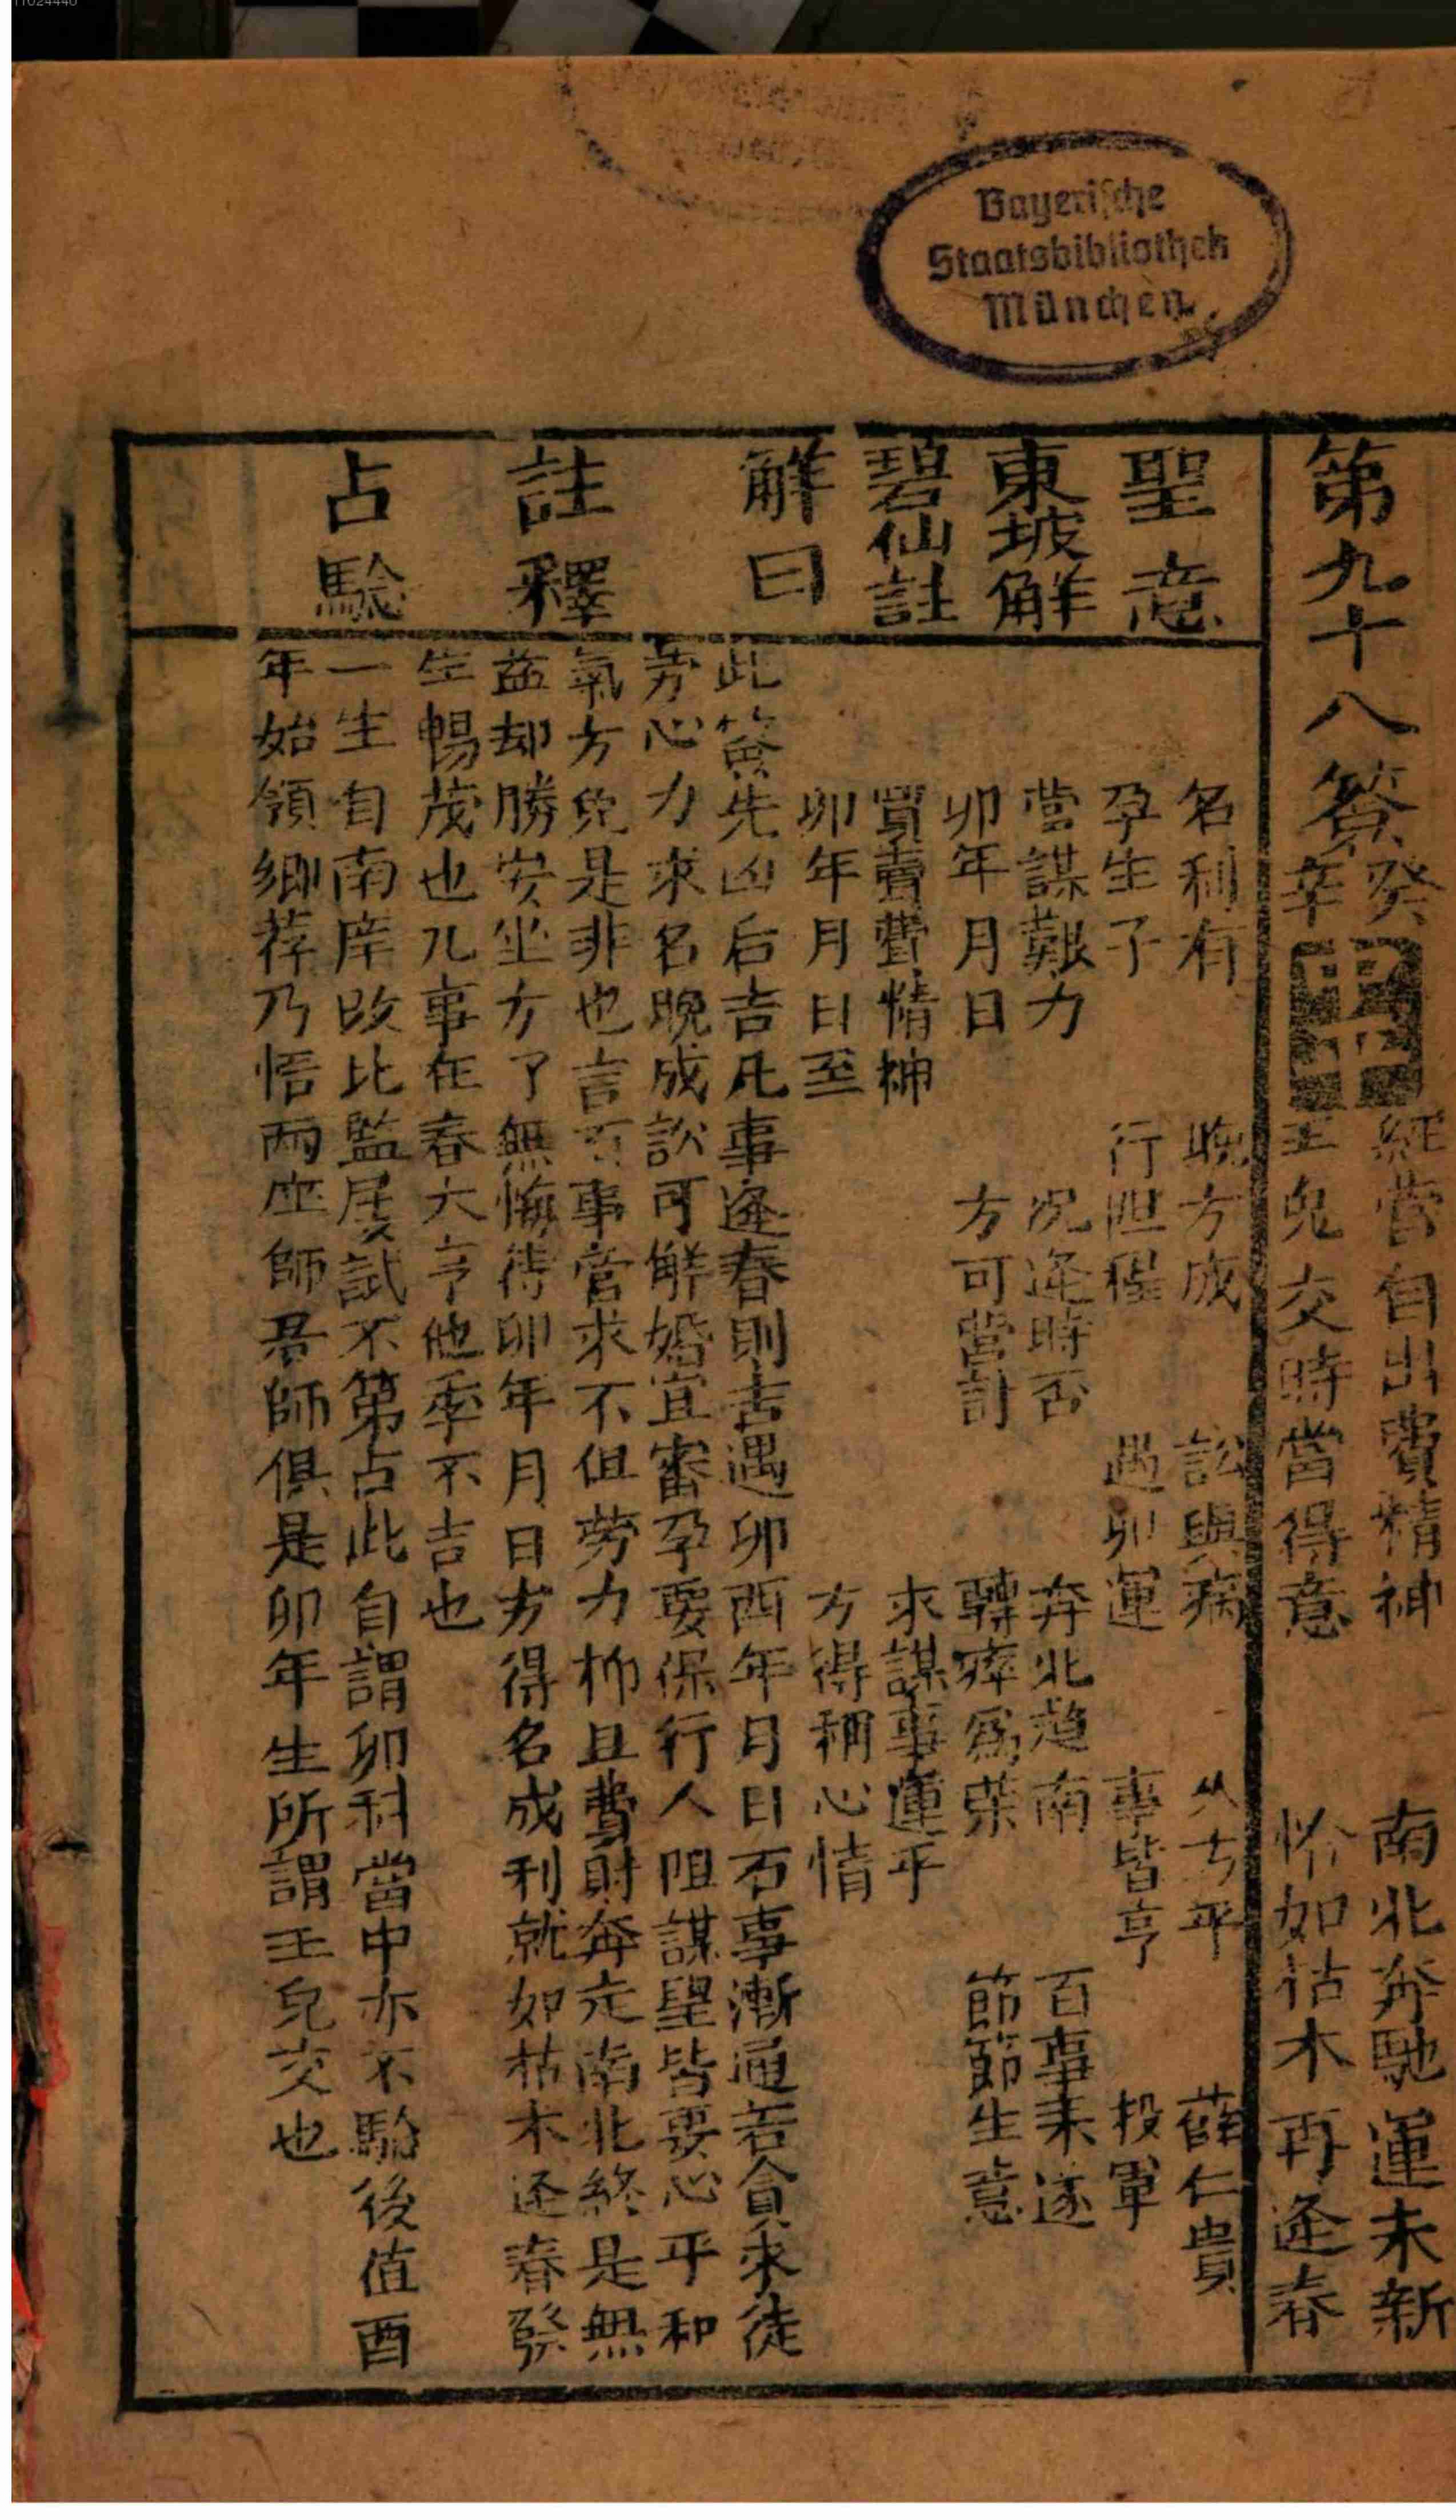 11024440
Bayerische
Staatsbibliothek
München
第九十八簽
癸辛
經營自出費精神
南北奔馳運未新
玉兔交時當得意
恰如枯木再逢春
聖意
名利有
晚方成
訟與病
久方平
薛仁貴
孕生子
行阻程
遇卯運
事皆亨
投軍
東坡解
當謀艱力
況逢時否
奔北趨南
百事未遂
卯年月日
方可當討
轉瘁為荣
節節生意
碧仙註
買賣費精神
求謀事運乎
卯年月日至
方得稱心情
解曰
此簽先凶后吉凡事逢春則吉遇卯酉年月日石事漸通若貪求徒
劳心力求名晚成訟可解婚宜審孕要保行人阻謀望皆要心平和
註釋
氣方免是非也言百事當求不但劳力柳且費財奔走南北終是無
益却勝安坐方了無悔待卯年月日方得名成利就如枯木逢春發
生暢茂也凡事在春大亨他季不吉也
占驗
一生自南庠改北監屡試不第占此自謂卯科當中亦不驗後值酉
年始領鄉荐乃悟兩座師房師俱是卯年生所謂玉兔交也